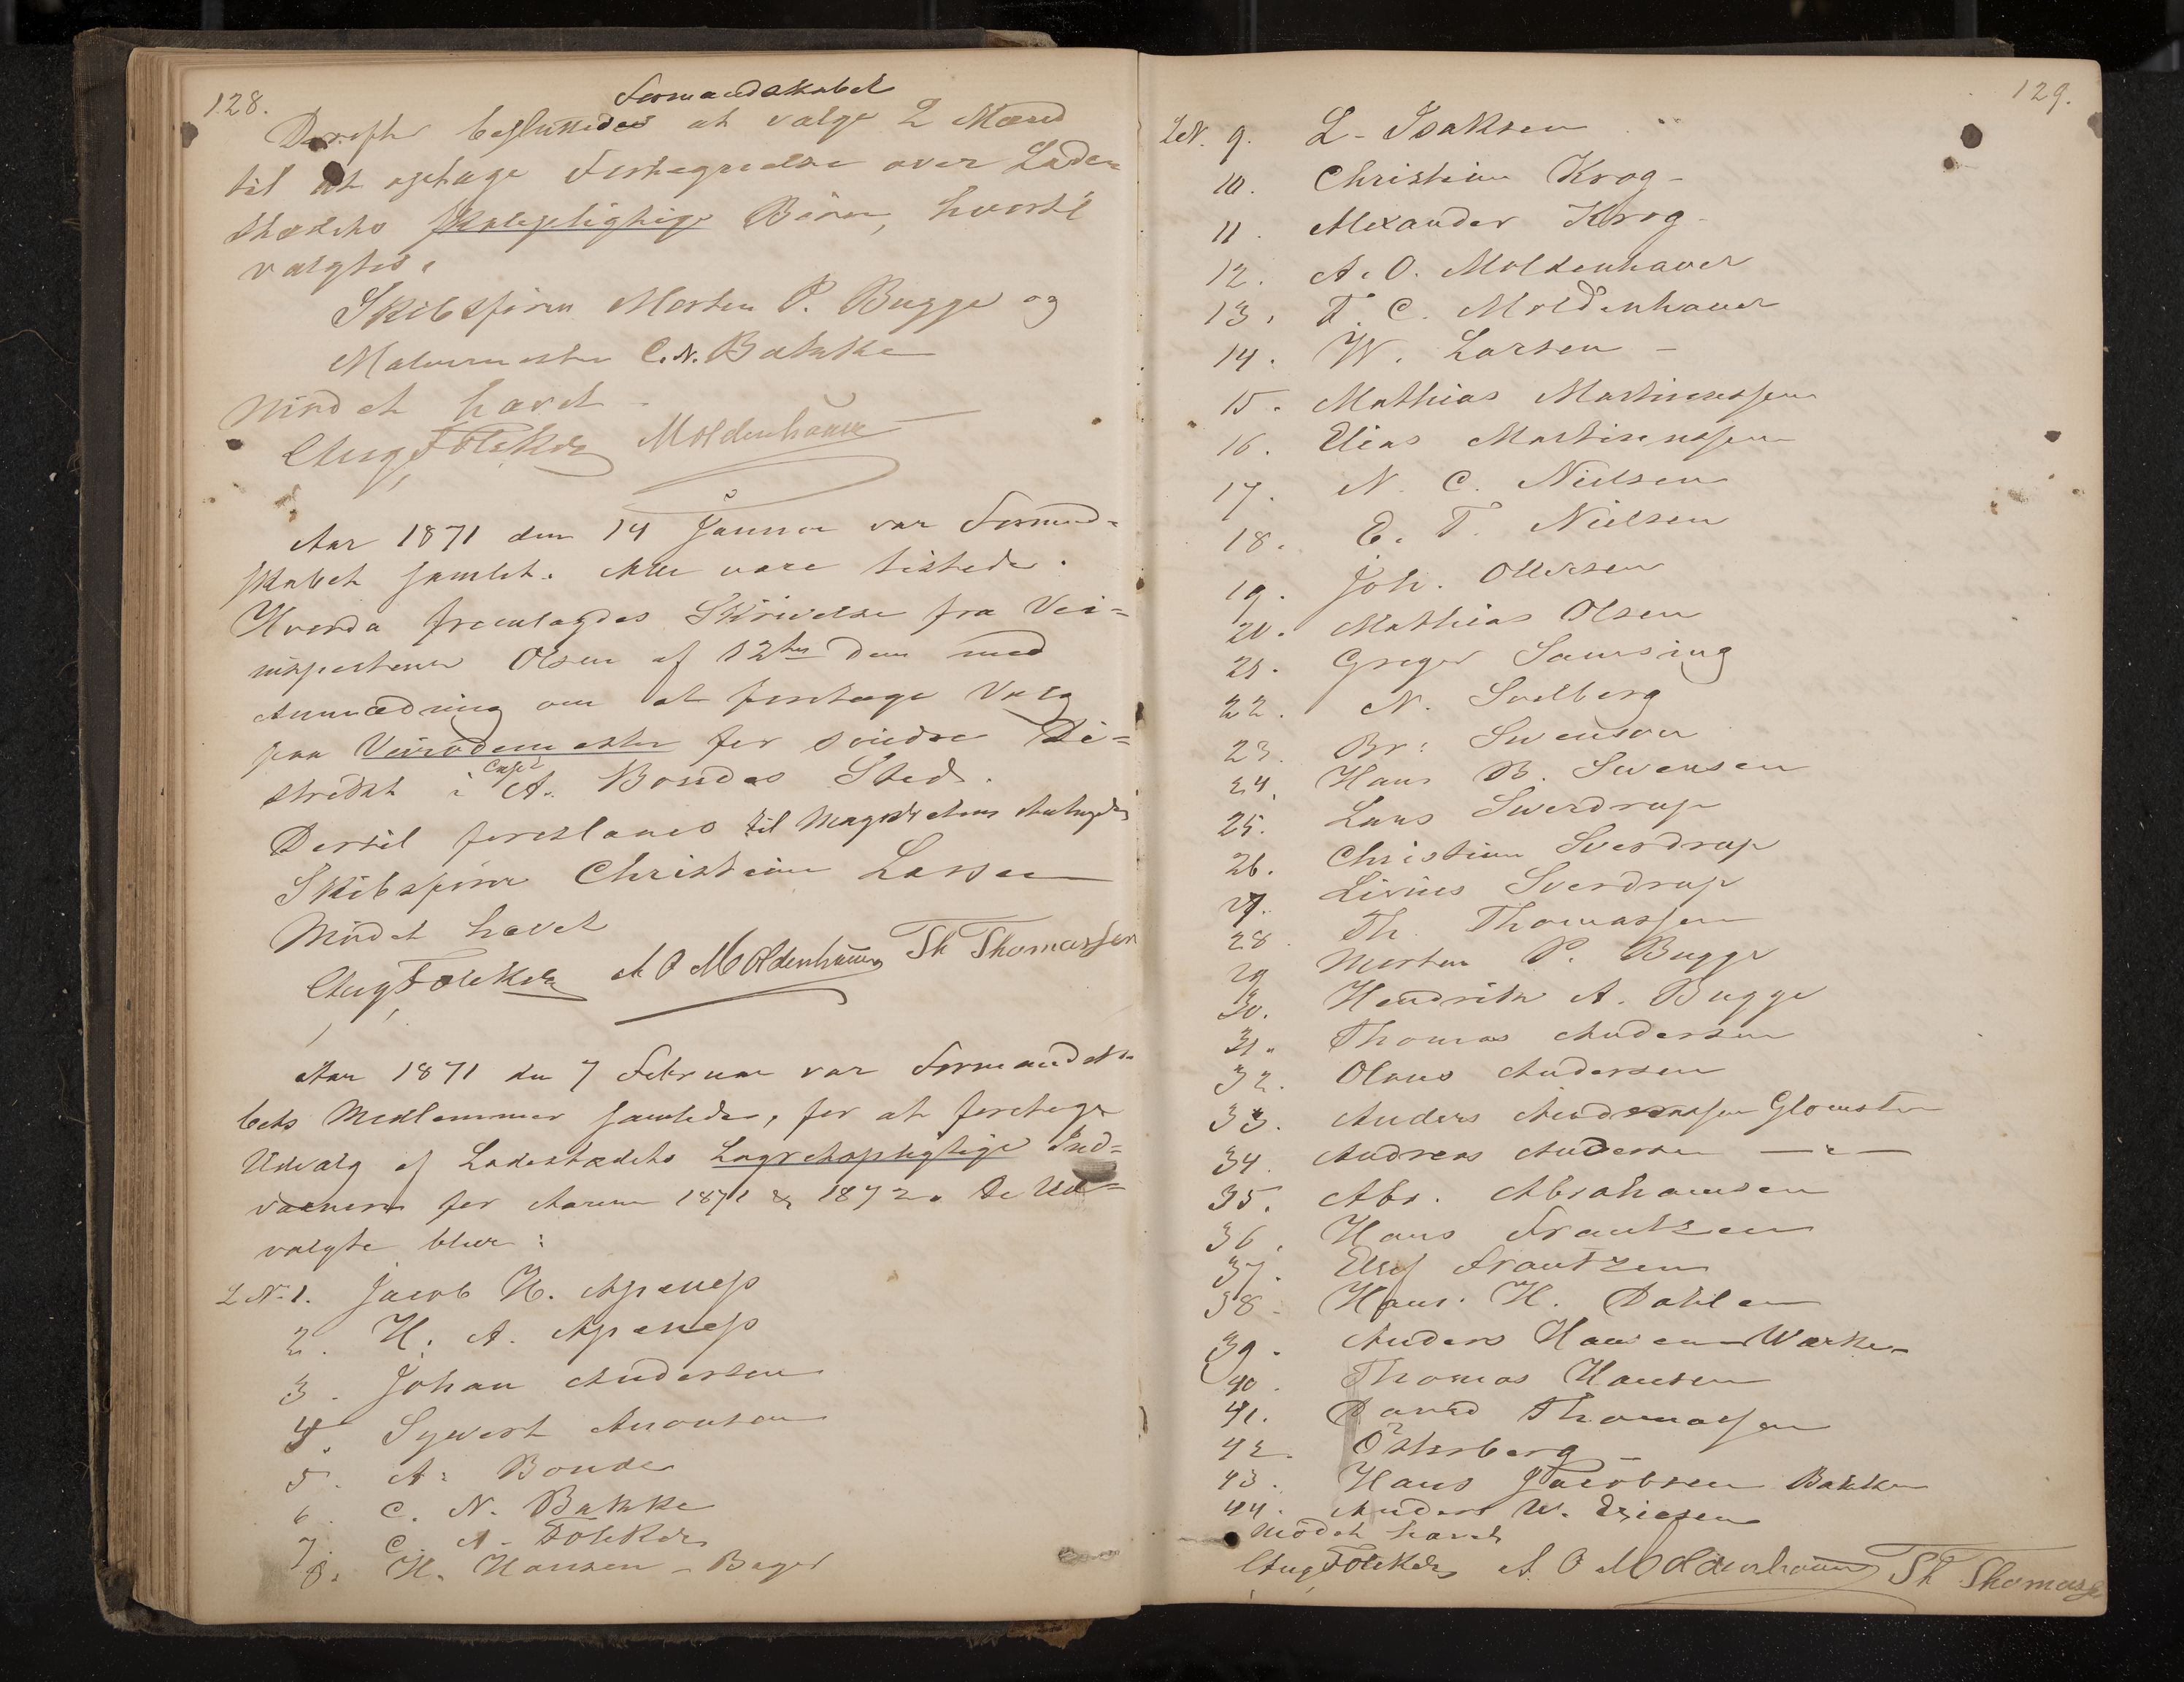 128.
Formandskabet
Derefter besluttedes at valge 2 Mænd
til at optage Fortegnelse over Lade-
stædets skolepligtige Börn, hvortil
valgtes.
Skibsförer Morten P. Bugge og
Malermester C. N. Bakke
Mödet hævet -
Aug Foleker Moldenhauer
Aar 1871 den 14 Januar var Formand-
skabet samlet. Alle vare tilstede.
Hvorda fremlagdes Skrivelse fra Vei-
inspecteur Olsen af 12te dens med
Anmodning om at foretage Valg
paa Veirodemester for söndre Di-
strikt i Capt A. Bondes Sted.
Dertil foresloges til Magistratens
Skibsförer Christian Lassen
Mödet hævet
Aug Foleker A O Moldenhauer Th Thomassen
Aar 1871 den 7 Februar var Formandska-
bets Medlemmer samlede, for at foretage
Udvalg af Ladestædets Lagrettepligtige Ind-
vaanere for Aarene 1871 & 1872. De Ud-
valgte blev:
LN. 1. Jacob H. Apenes
2. H. A. Apenes
3. Johan Andersen
4. Syvert Aronsen
5. A. Bonde
6. C. N. Bakke
7. C. A. Foleker
8. H. Hansen - Bager
129.
LN. 9. L. Isaksen
10. Christian Krog -
11. Alexander Krog -
12. A. O. Moldenhauer
13. F. C. Moldenhauer
14. W. Larsen -
15. Mathias Martinussen
16. Elias Martinussen
17. N. C. Nielsen
18. E. T. Nielsen
19. Joh. Ollersen
20. Mathias Olsen
21. Greger Samsing
22. N. Solberg
23. Br: Swensen
24. Hans B. Swensen
25. Lars Swerdrup
26. Christian Sverdrup
27. Livius Sverdrup
28. Th. Thomassen
29 Morten P. Bugge
30. Hendrik A. Bugge
31. Thomas Andersen
32. Olaus Andersen
33. Anders Andreassen Glomsten
34. Andreas Andersen — " —
35. Abr. Abrahamsen
36. Hans Frantzen
37. Elef Frantzen
38. Hans H. Dahlen
39. Anders Hansen Warke-
40. Thomas Hansen
41. David Thomassen
42. Österberg
43. Hans Jacobsen Bakken
44. Anders W. Ericsen
Mödet hævet
Aug Foleker A. O Moldenhauer Th Thomassen